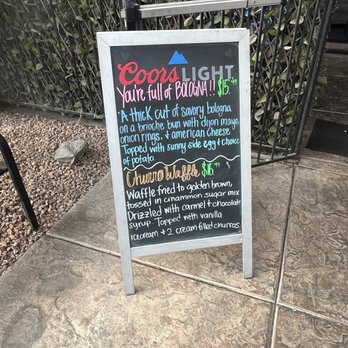 Coors LIGHT
You're full of BOLOGNA!! $15.99
A thick cut of savory bologna
on a brioche bun with dijon mayo
onion rings, + american cheese.
Topped with sunny side egg + choice
of potato
Churro Waffle $16.99
Waffle fried to golden brown,
tossed in cinammon sugar mix
Drizzled with carmel + chocolate
syrup. Topped with vanilla
icecream + 2 cream filled churros.